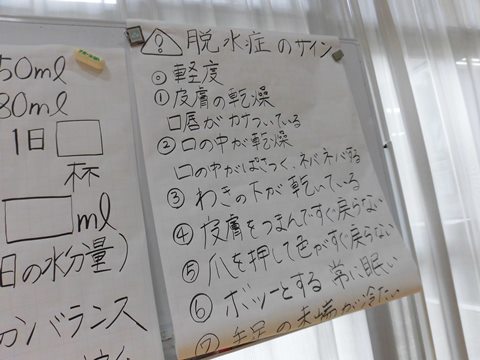 50ml
80ml
1日
杯
ml
日の水分量)
バランス
? 脱水症のサイン
◎軽度
①皮膚の乾燥
口唇がカサついている
②口の中が乾燥
口の中がぱさつく、ネバネバする
③わきの下が乾いている
④皮膚をつまんですぐ戻らない
⑤爪を押して色がすぐ戻らない
⑥ボッーとする 常に眠い
⑦手足の末端が冷たい